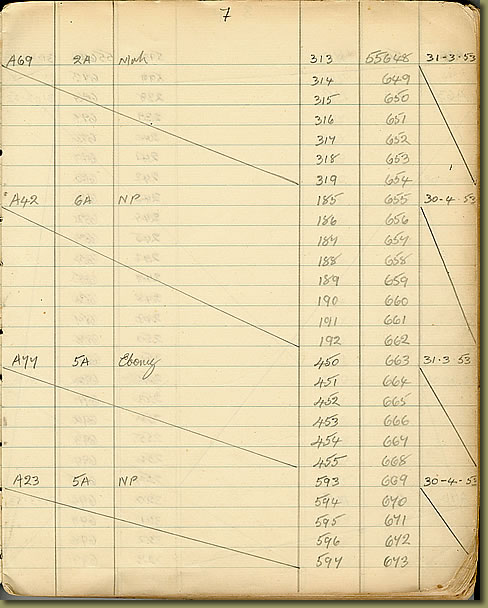 7
A69 2A Mah 313 55648 31-3-53
314 649
315 650
316 651
317 652
318 653
319 654
A42 6A NP 185 655 30-4-53
186 656
187 657
188 658
189 659
190 660
191 661
192 662
A77 5A Ebony 450 663 31.3.53
451 664
452 665
453 666
454 667
455 668
A23 5A NP 593 669 30-4-53
594 670
595 671
596 672
597 673